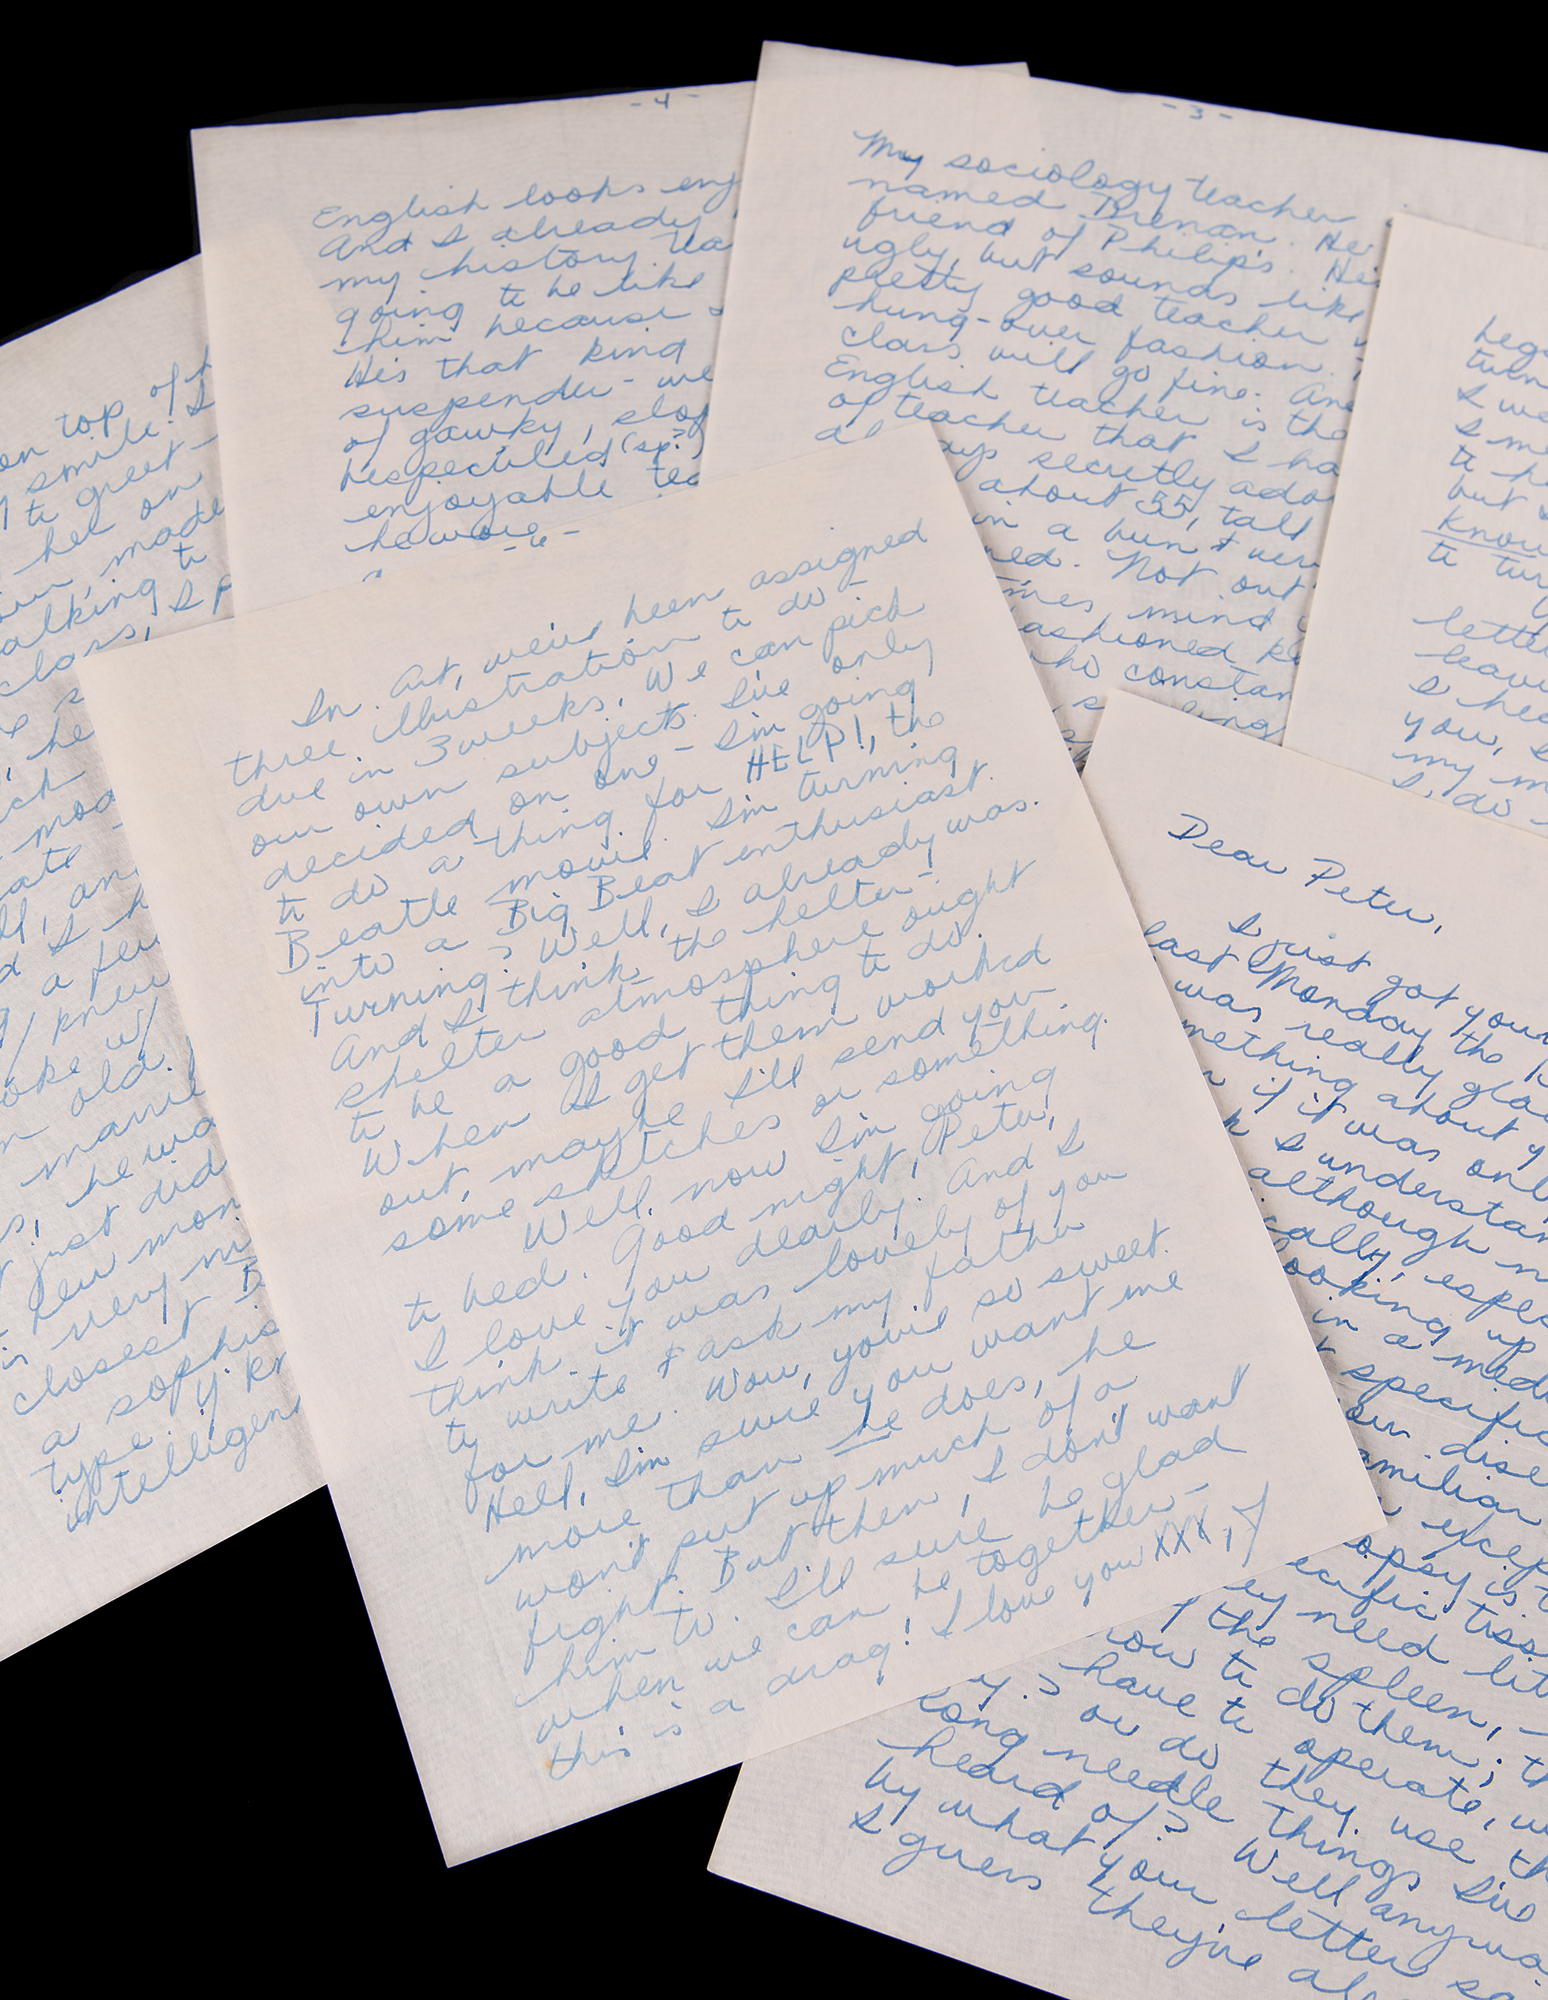 - 4 -
English looks enj
And I already
my history tea
going to be like
him because
He's that kind
suspender - we
of gawky, slop
bespecticled (sp?)
enjoyable tea
he wore
- 3 -
My sociology teacher
named Brenan. He
friend of Philip's. He's
ugly, but sounds like
pretty good teacher
hung-over fashion.
class will go fine. And
English teacher is the
of teacher that I ha
always secretly ado
about 55, tall
in a bun & ver
ned. Not out
times, mind
ashioned ki
who constan
ling
on top of h
smile. I
to greet-
her on
made
alking to
class, I p
he
ck
mod
ate
ll, and
d I h
a few
w/ knew
oke w/
n old.
marri
s, he wa
t just did
new mon
is very ni
closest B
a sophis
type. y kn
intelligen
- 6 -
In Art, we've been assigned
three illustrations to do -
due in 3 weeks. We can pick
our own subjects. I've only
decided on one - I'm going
to do a thing for HELP!, the
Beatle movie. I'm turning
into a Big Beat enthusiast.
Turning? Well, I already was.
And I think the helter-
shelter atmosphere ought
to be a good thing to do.
When I get them worked
out, maybe I'll send you
some sketches or something.
Well, now I'm going
to bed. Good night, Peter,
I love you dearly. And I
think it was lovely of you
to write & ask my father
for me. Wow, you're so sweet.
Hell, I'm sure you want me
more than he does, he
won't put up much of a
fight. But then, I don't want
him to. I'll sure be glad
when we can be together -
this is a drag! I love you XXX, J
bega
turn
I we
I me
to he
but I
know
to tur
lette
leavi
I hea
you, I
my m
I do
Dear Peter,
I just got your
last Monday the
was really glad
mething about y
if it was onl
I understan
although n
cally, espec
looking up
in a medi
specific
our dise
amiliar
excep
opsy is t
ecific tiss
ey need lit
the spleen,
how to do them; th
y? have to operate, w
or do they use th
long needle things I've
heard of? Well anyway
by what your letter sa
I guess they've al